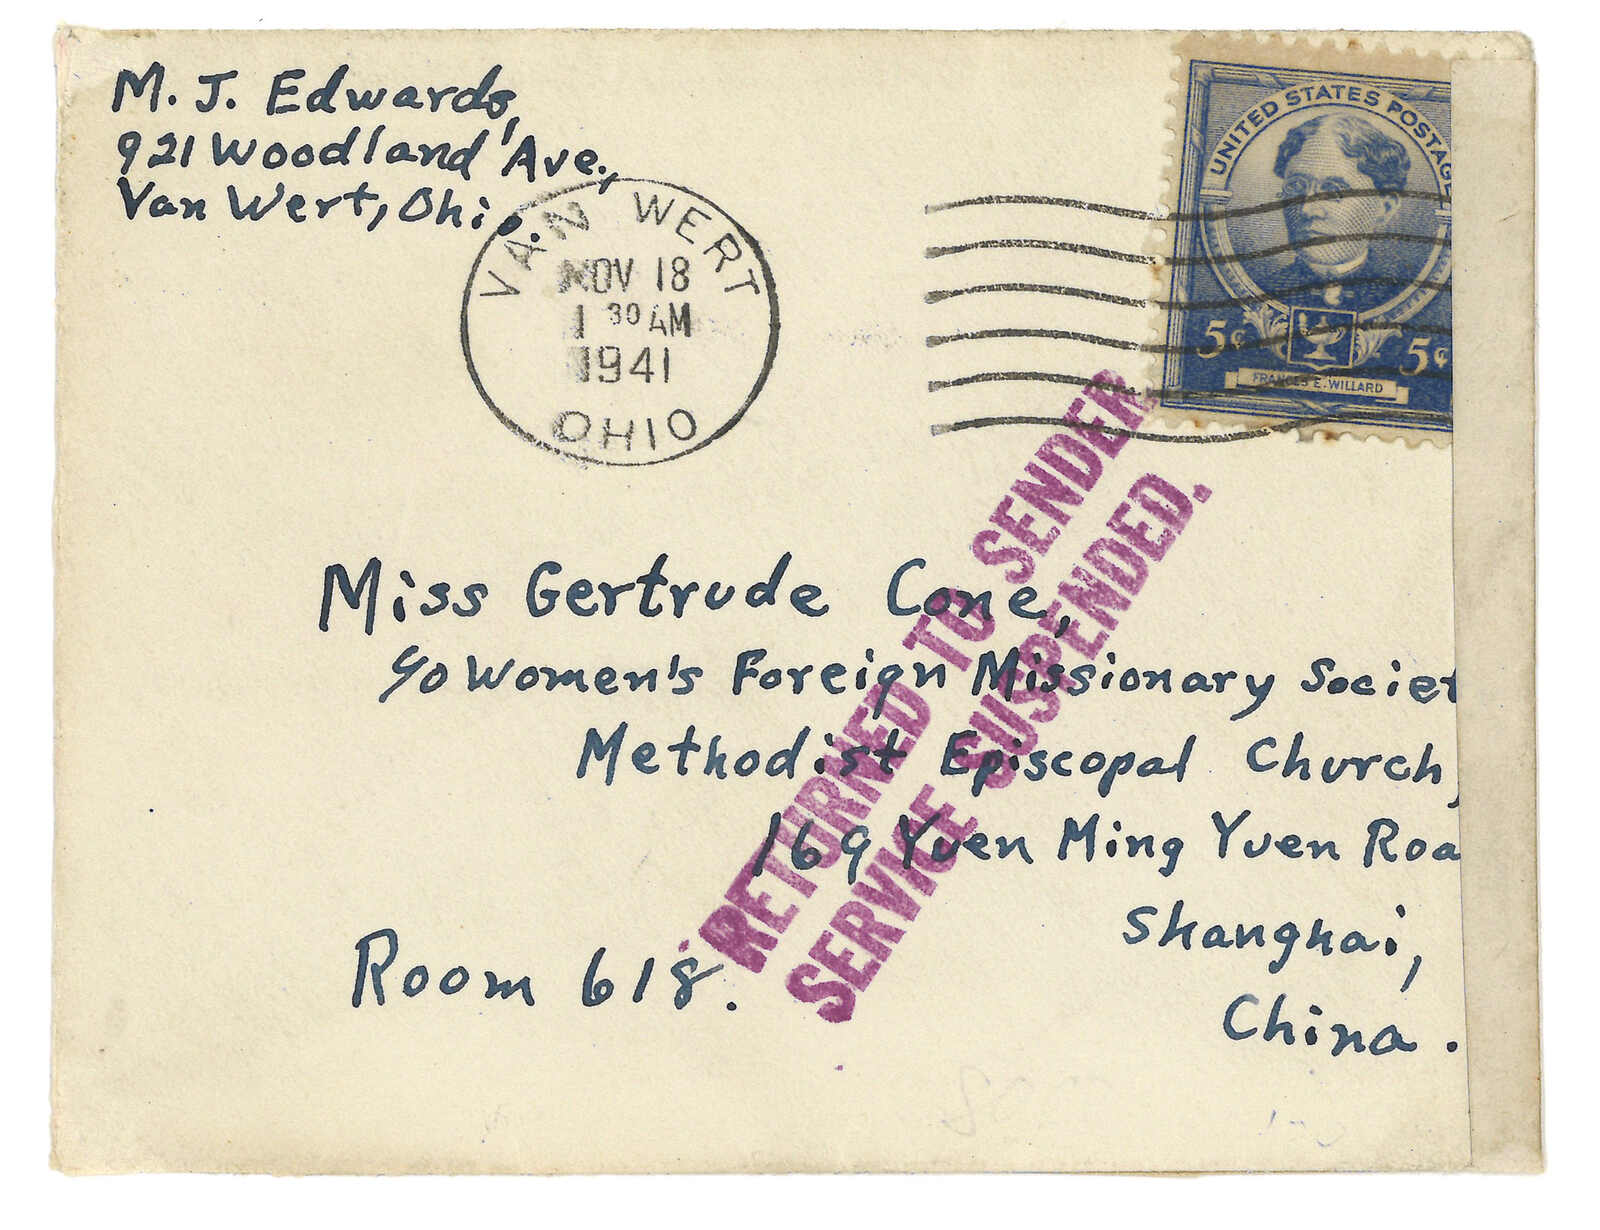 M. J. Edwards,
921 Woodland Ave.,
Van Wert, Ohio.
VAN WERT
NOV 18
1 30 AM
1941
OHIO
UNITED STATES POSTAGE
5¢ 5¢
FRANCES E. WILLARD
RETURNED TO SENDER
SERVICE SUSPENDED.
Miss Gertrude Cone,
c/o Women's Foreign Missionary Societ
Methodist Episcopal Church,
169 Yuen Ming Yuen Roa
Shanghai,
China.
Room 618.